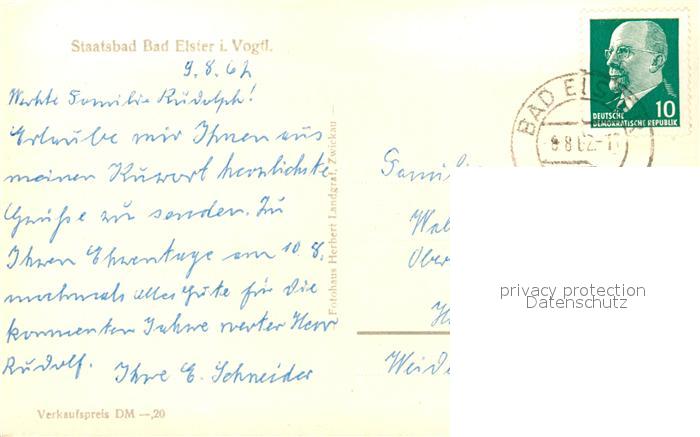 Staatsbad Bad Elster i. Vogtl.
9.8.62
Werkte Familie Rudolph!
Erlaube mir Ihnen aus
meinen Kurort herzlichste
Grüße zu senden. Zu
Ihren Ehrentage am 10.8.
nochmals alles Gute für die
kommenten Jahre werter Herr
Rudolf. Ihre E. Schneider
Verkaufspreis DM —,20
Fotohaus Herbert Landgraf, Zwickau
BAD ELS
9 8 62-1
10
DEUTSCHE
DEMOKRATISCHE REPUBLIK
Famili
Wal
Ober
Weide
privacy protection
Datenschutz